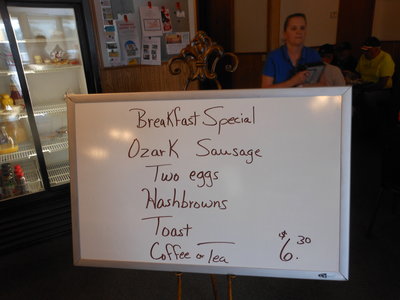 Breakfast Special
Ozark Sausage
Two eggs
Hashbrowns
Toast
Coffee or Tea $6.30